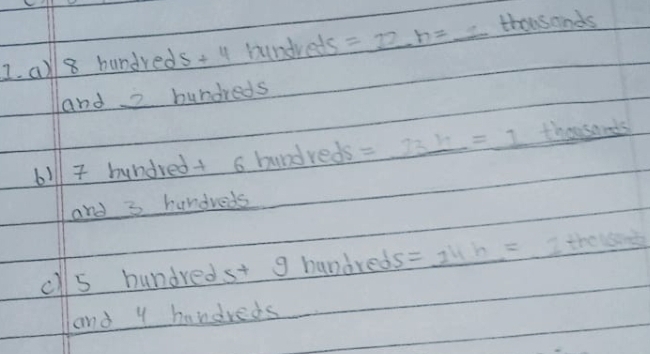 1.a) 8 hundreds + 4 hundreds = 12 h = 1 thousands
and 2 hundreds
b) 7 hundred + 6 hundreds = 13 h = 1 thousands
and 3 hundreds
c) 5 hundreds + 9 hundreds = 14 h = 1 thousands
and 4 hundreds